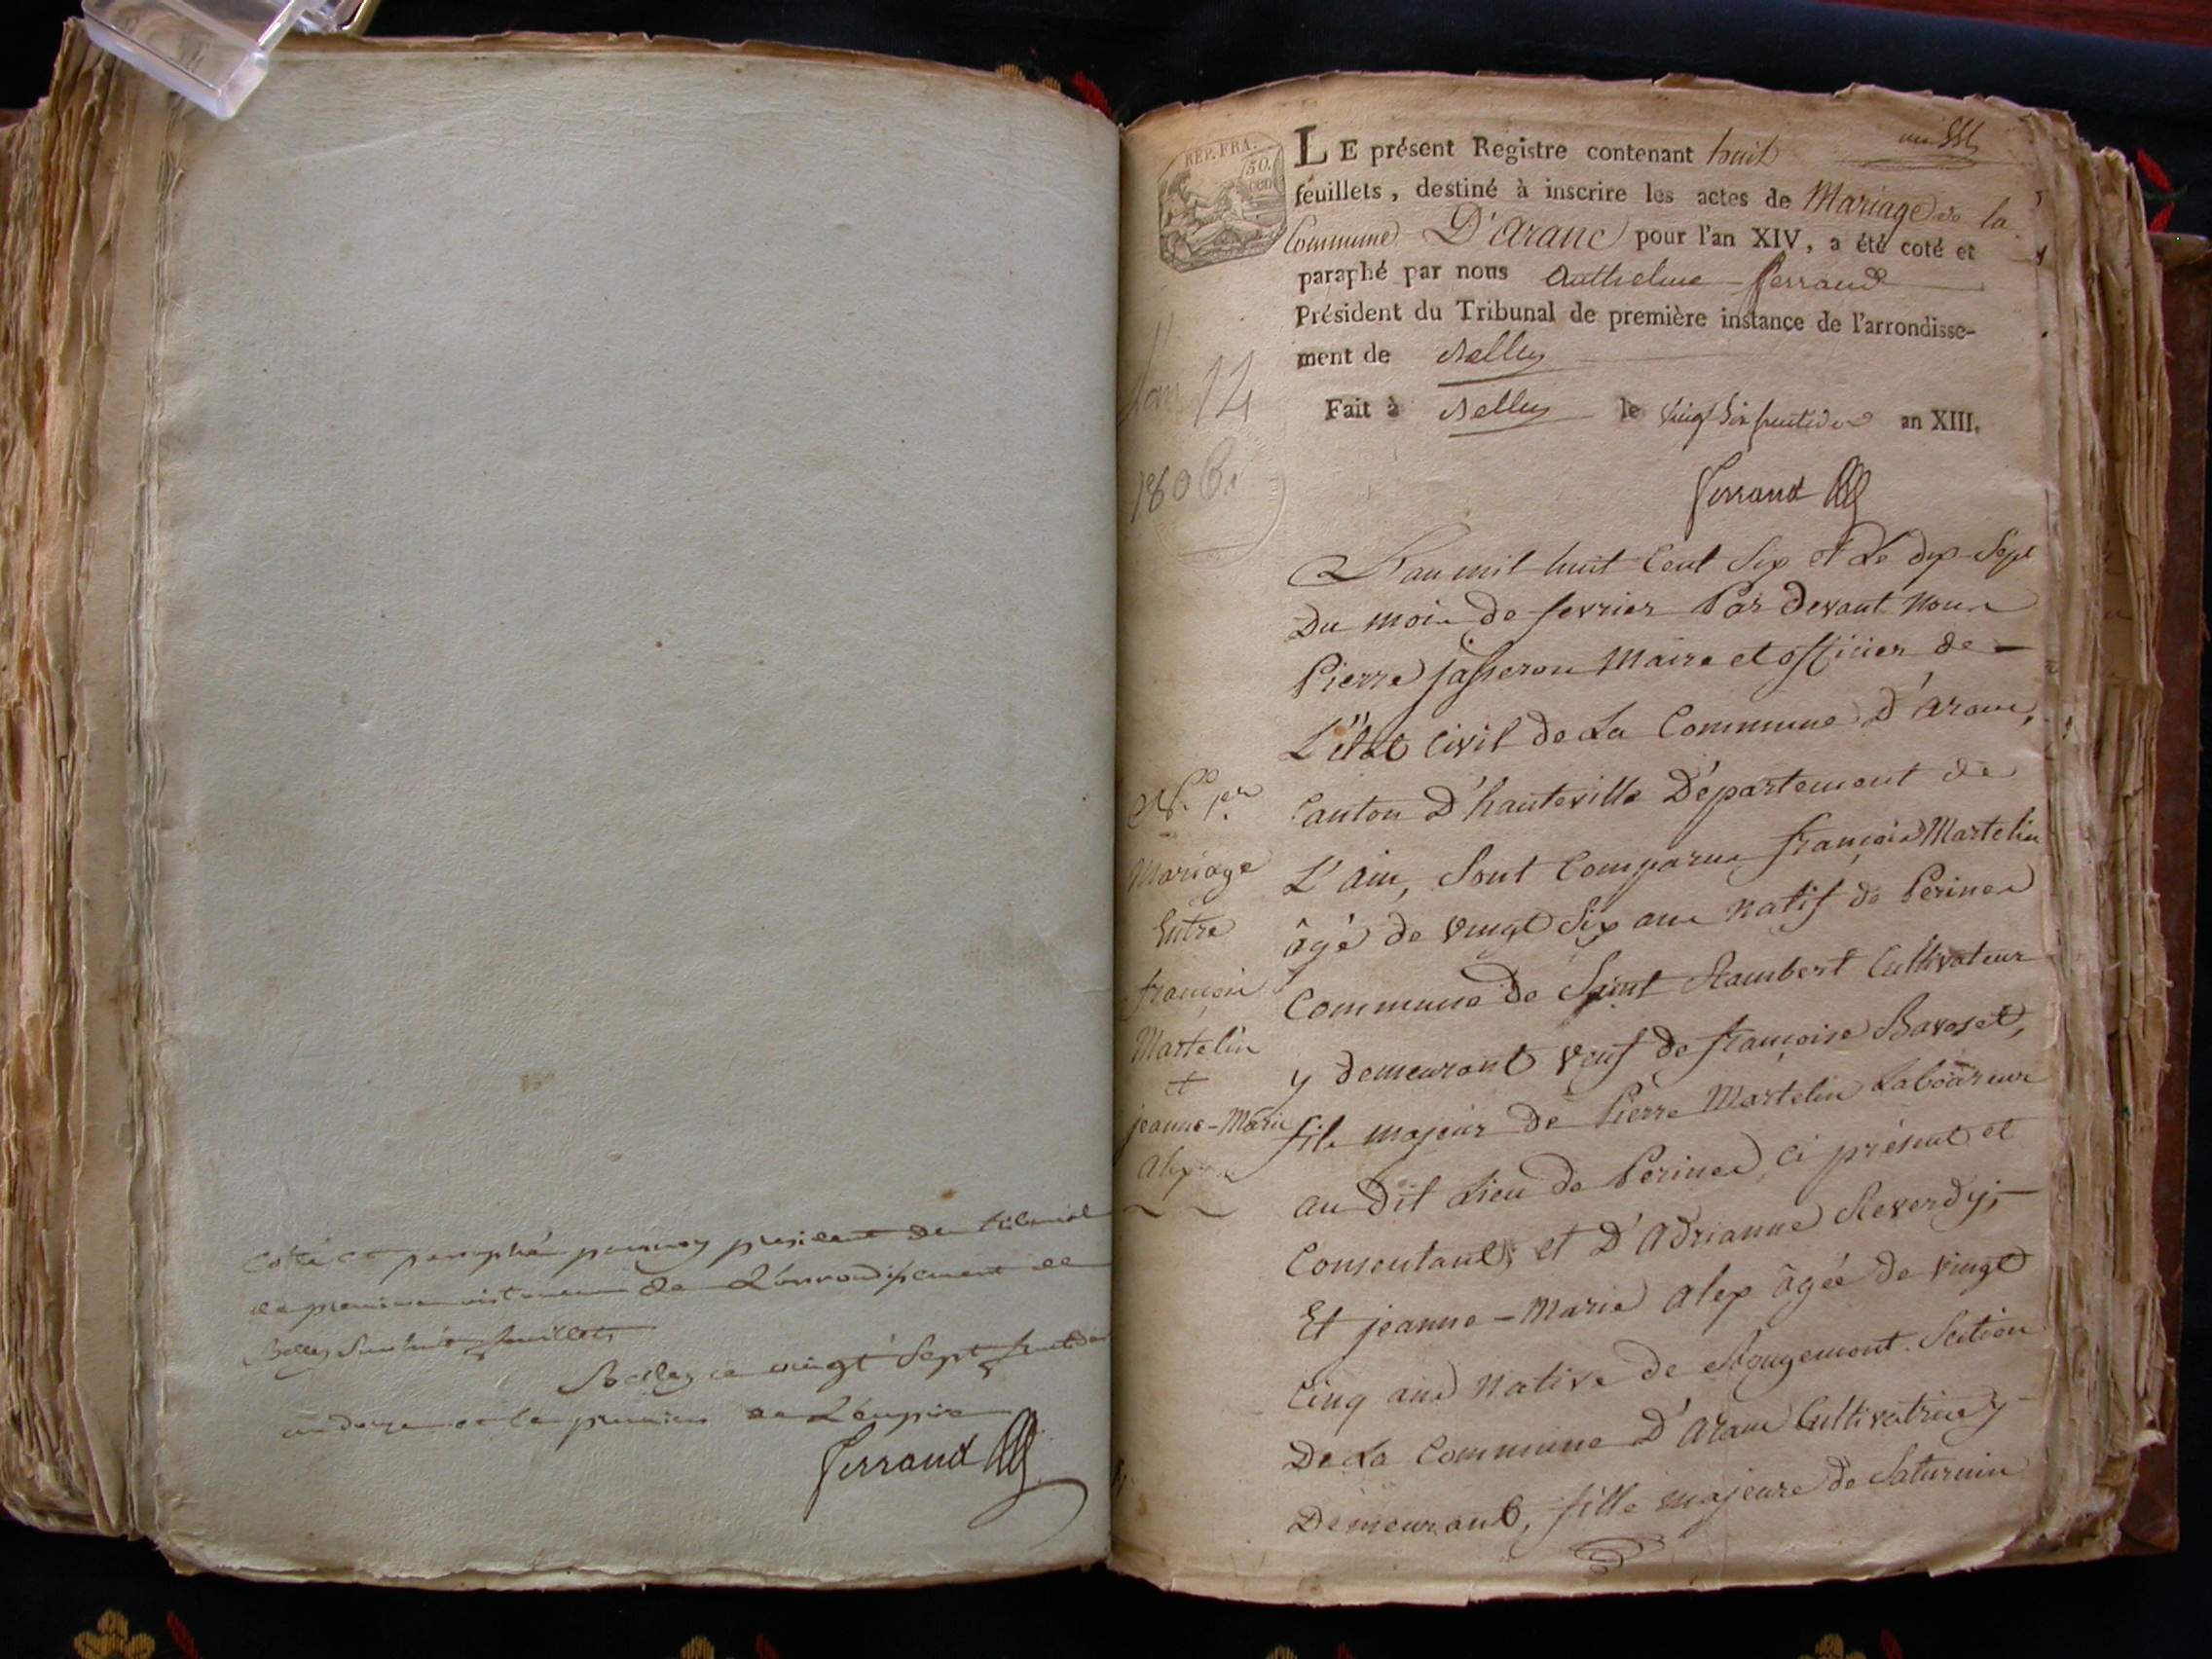 coté et paraphé par moy president du tribunal
de premiere instance de L'arrondissement de
Belley Sur huit feuillets
Belley ce vingt Sept fructidor
an treize et le premier de L'empire
Ferrand
REP. FRA.
50.
cen
L'an 14
1806
LE présent Registre contenant huit
feuillets, destiné à inscrire les actes de Mariage de la
Commune D'Aranc pour l'an XIV, a été coté et
paraphé par nous Anthelme Ferrand
Président du Tribunal de première instance de l'arrondisse-
ment de Belley
Fait à Belley le vingt six fructidor an XIII.
Ferrand
L'an mil huit Cent Six et Le dix-Sept
Du mois de fevrier Par devant Nous
Pierre Jasseron Maire et officier de
L'état Civil de La Commune D'aranc,
Canton D'hauteville Département de
L'ain, Sont Comparus françois Martelin
âgé de vingt Six ans natif de Perines
Commune de Saint Rambert Cultivateur
y demeurant veuf de françoise Bavoset,
fils majeur de Pierre Martelin Laboureur
au dit Lieu de Perines, ci présent et
Consentant, et D'Adrianne Reverdy,
Et jeanne-Marie alex âgée de vingt
Cinq ans native de Rougemont Section
De La Commune D'Aranc Cultivatrice y
Demeurant, fille majeure de Saturnin
N.º 1.er
Mariage
Entre
françois
Martelin
et
jeanne-Marie
alex